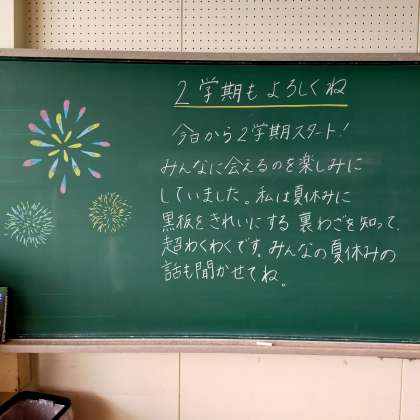 2学期もよろしくね
今日から2学期スタート!
みんなに会えるのを楽しみに
していました。私は夏休みに
黒板をきれいにする裏わざを知って、
超わくわくです。みんなの夏休みの
話も聞かせてね。